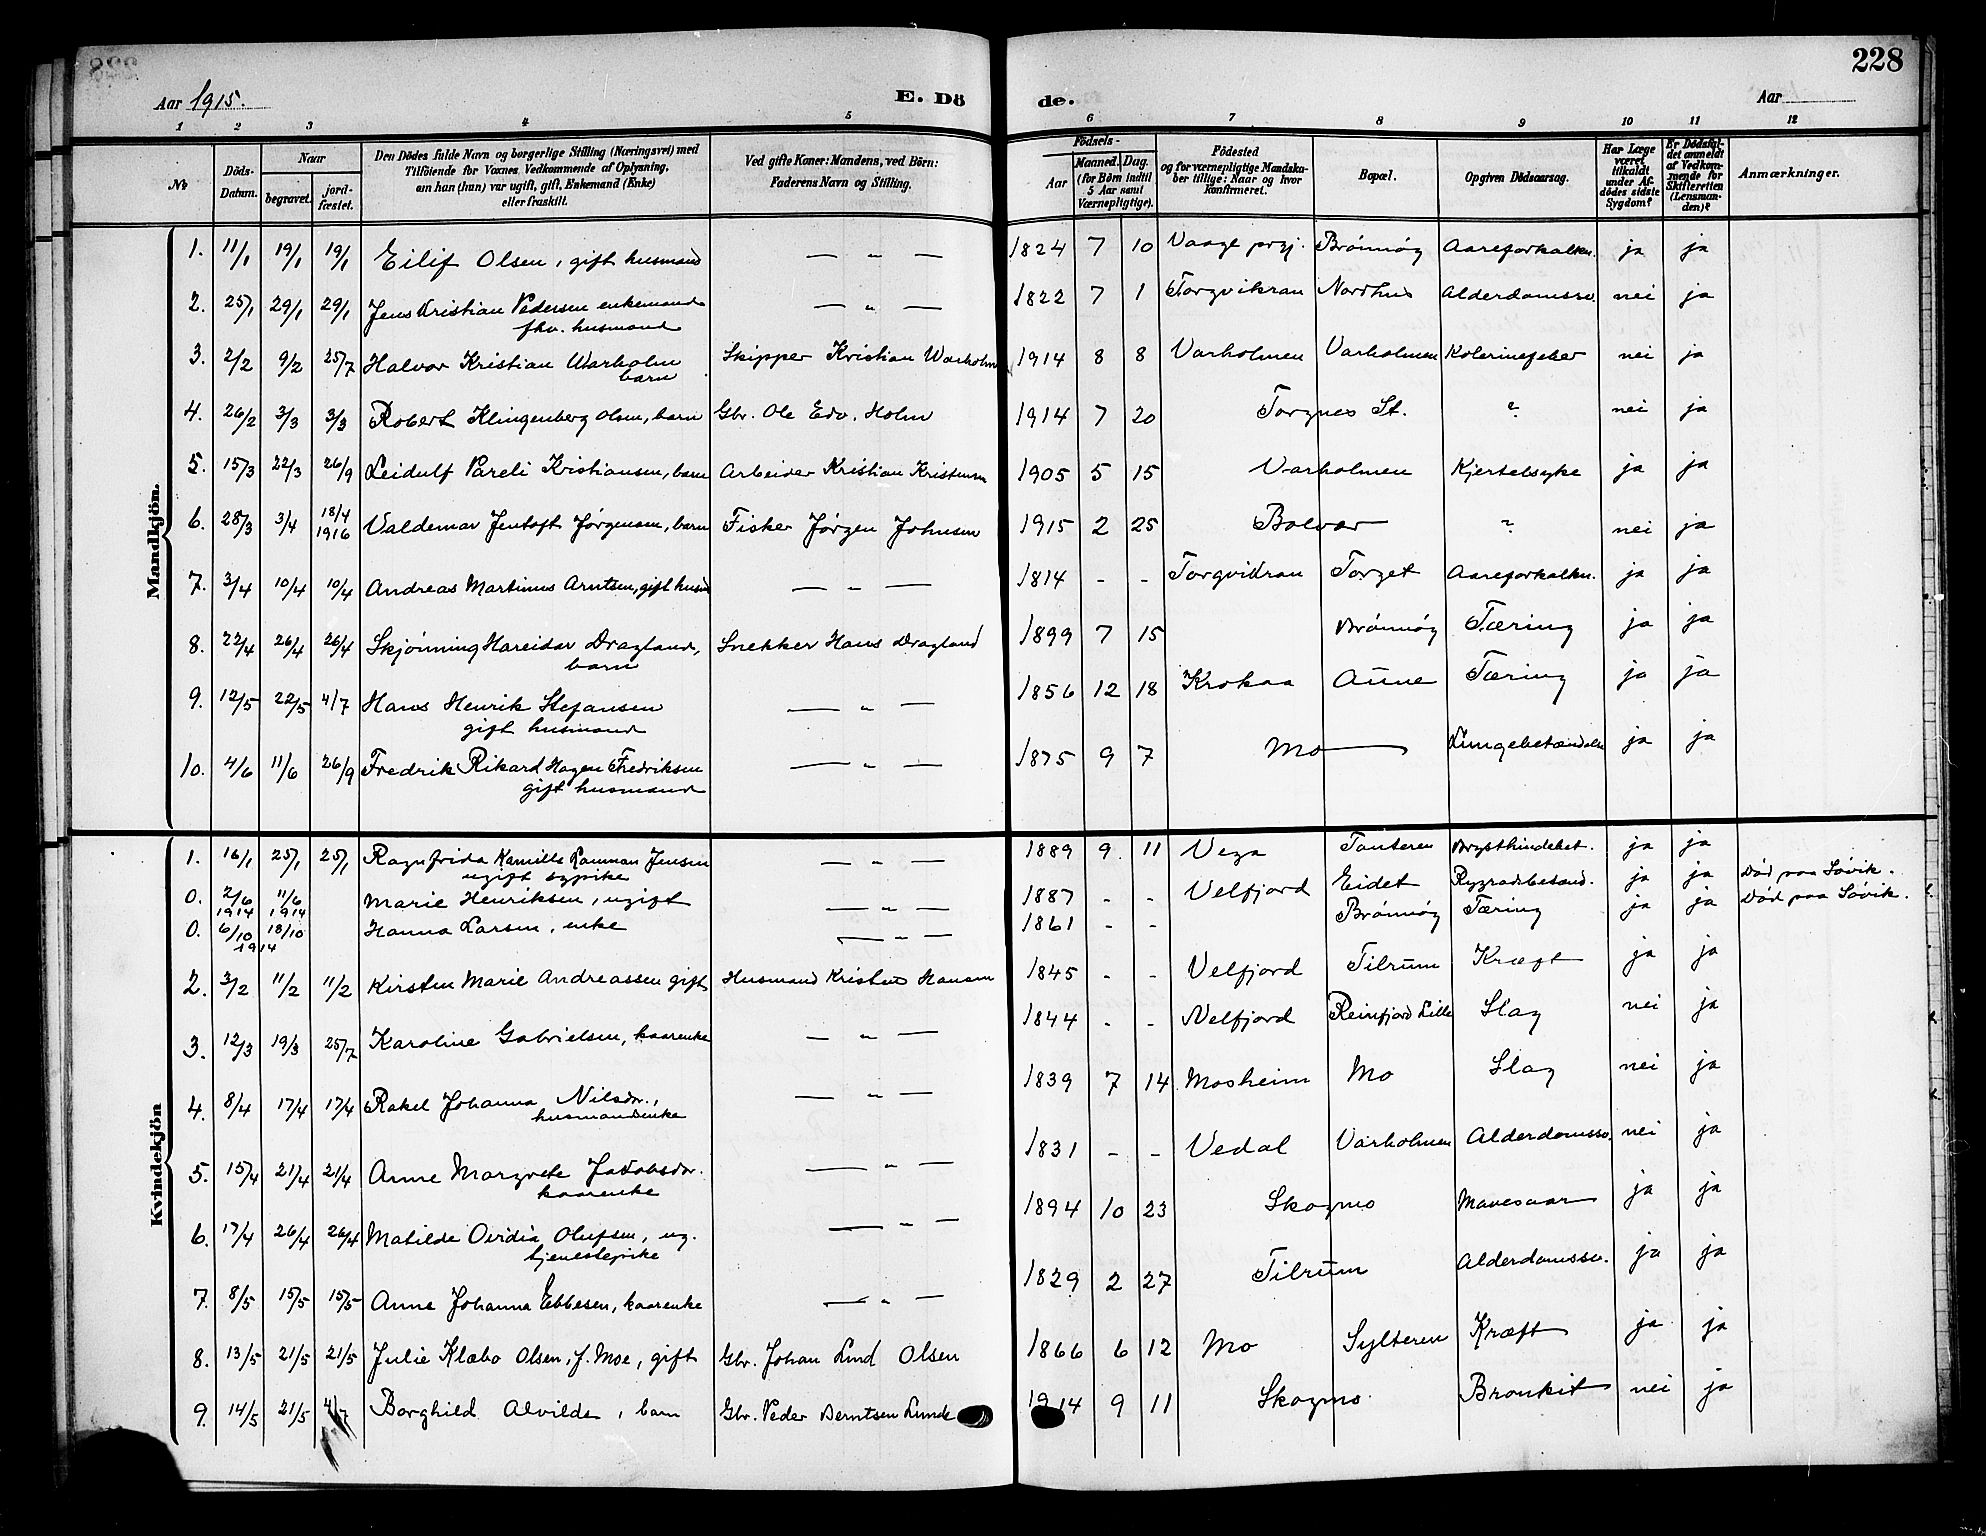 228
Aar 1915. E. Dö de. Aar
1 2 3 4 5 6 7 8 9 10 11 12
No Döds-Datum. Naar begravet. jord-fæstet. Den Dödes fulde Navn og borgerlige Stilling (Næringsvei) med Tilföiende for Voxnes Vedkommende af Oplysning, om han (hun) var ugift, gift, Enkemand (Enke) eller fraskilt. Ved gifte Koner: Mandens, ved Börn: Faderens Navn og Stilling. Födsels- Aar Maaned. Dag. (for Börn indtil 5 Aar samt Værnepligtige). Födested og for værnepligtige Mandskaber tillige: Naar og hvor konfirmeret. Bopæl. Opgiven Dödsaarsag. Har Læge været tilkaldt under Afdödes sidste Sygdom? Er Dödsfaldet anmeldt af Vedkommende for Skifteretten (Lensmanden)? Anmærkninger.
Mandkjön.
1. 11/1 19/1 19/1 Eilif Olsen, gift husmand — " — 1824 7 10 Vaage prgj. Brönnög Aareforkalkn. ja ja
2. 25/1 29/1 29/1 Jens Kristian Pedersen enkemand — " — 1822 7 1 Torgvikran Nordhus Alderdomssv. nei ja
fhv. husmand
3. 2/2 9/2 25/7 Halvor Kristian Warholm Skipper Kristian Warholm 1914 8 8 Varholmen Varholmen Kolerinefeber nei ja
barn
4. 26/2 3/3 3/3 Robert Klingenberg Olsen, barn Gbr. Ole Edv. Holm 1914 7 20 Torgnes St. ? nei ja
5. 15/3 22/3 26/9 Leidulf Pareli Kristiansen, barn Arbeider Kristian Kristensen 1905 5 15 Varholmen Kjertelsyke ja ja
6. 28/3 3/4 18/4 1916 Valdemar Jentoft Jørgensen, barn Fisker Jørgen Johnsen 1915 2 25 Bolvær ? nei ja
7. 3/4 10/4 10/4 Andreas Martinus Arntsen, gift husmd — " — 1814 - - Torgvikran Torget Aareforkalkn. ja ja
8. 22/4 26/4 26/4 Skjønning Hareidar Dragland, Snekker Hans Dragland 1899 7 15 Brönnög Tæring ja ja
barn
9. 12/5 22/5 4/7 Hans Henrik Stefansen — " — 1856 12 18 Krokaa Aune Tæring ja ja
gift husmand
10. 4/6 11/6 26/9 Fredrik Rikard Hagen Fredriksen — " — 1875 9 7 Mo — Lungebetændelse ja ja
gift husmand
Kvindekjön
1. 16/1 25/1 25/1 Ragnfrida Kamilla Jensen — " — 1889 9 11 Vega Tanteren Brysthindebet. ja ja
ugift sypike
0. 2/6 1914 11/6 1914 Marie Henriksen, ugift — " — 1887 - - Velfjord Eidet Rygradsbetænd. ja ja Död paa Søvik.
0. 6/10 18/10 1914 Hanna Larsen, enke — " — 1861 - - Brönnög Tæring ja ja Död paa Søvik.
2. 3/2 11/2 11/2 Kirsten Marie Andreassen gift Husmand Kristen Hansen 1845 - - Velfjord Tilrum Kræft ja ja
3. 12/3 19/3 25/7 Karoline Gabrielsen, kaarenke — " — 1844 - - Velfjord Reinfjord Lille Slag nei ja
4. 8/4 17/4 17/4 Rakel Johanna Nilsdr., — " — 1839 7 14 Mosheim Mo Slag nei ja
husmandsenke
5. 15/4 21/4 21/4 Anne Margrete Jakobsdr. — " — 1831 - - Vedal Varholmen Alderdomssv. nei ja
kaarenke
6. 17/4 26/4 26/4 Matilde Ovidia Olufsen, ug. — " — 1894 10 23 Skogmo Mavesaar ja ja
tjenestepike
7. 8/5 15/5 15/5 Anne Johanna Ebbesen, kaarenke — " — 1829 2 27 Tilrum Alderdomssv. ja ja
8. 13/5 21/5 21/5 Julie Klæbo Olsen, f. Moe, gift Gbr. Johan Lind Olsen 1866 6 12 Mo Sylteren Kræft ja ja
9. 14/5 21/5 4/7 Borghild Alvilde, barn Gbr. Peder Berntsen Lunde 1914 9 11 Skogmo Bronkit nei ja